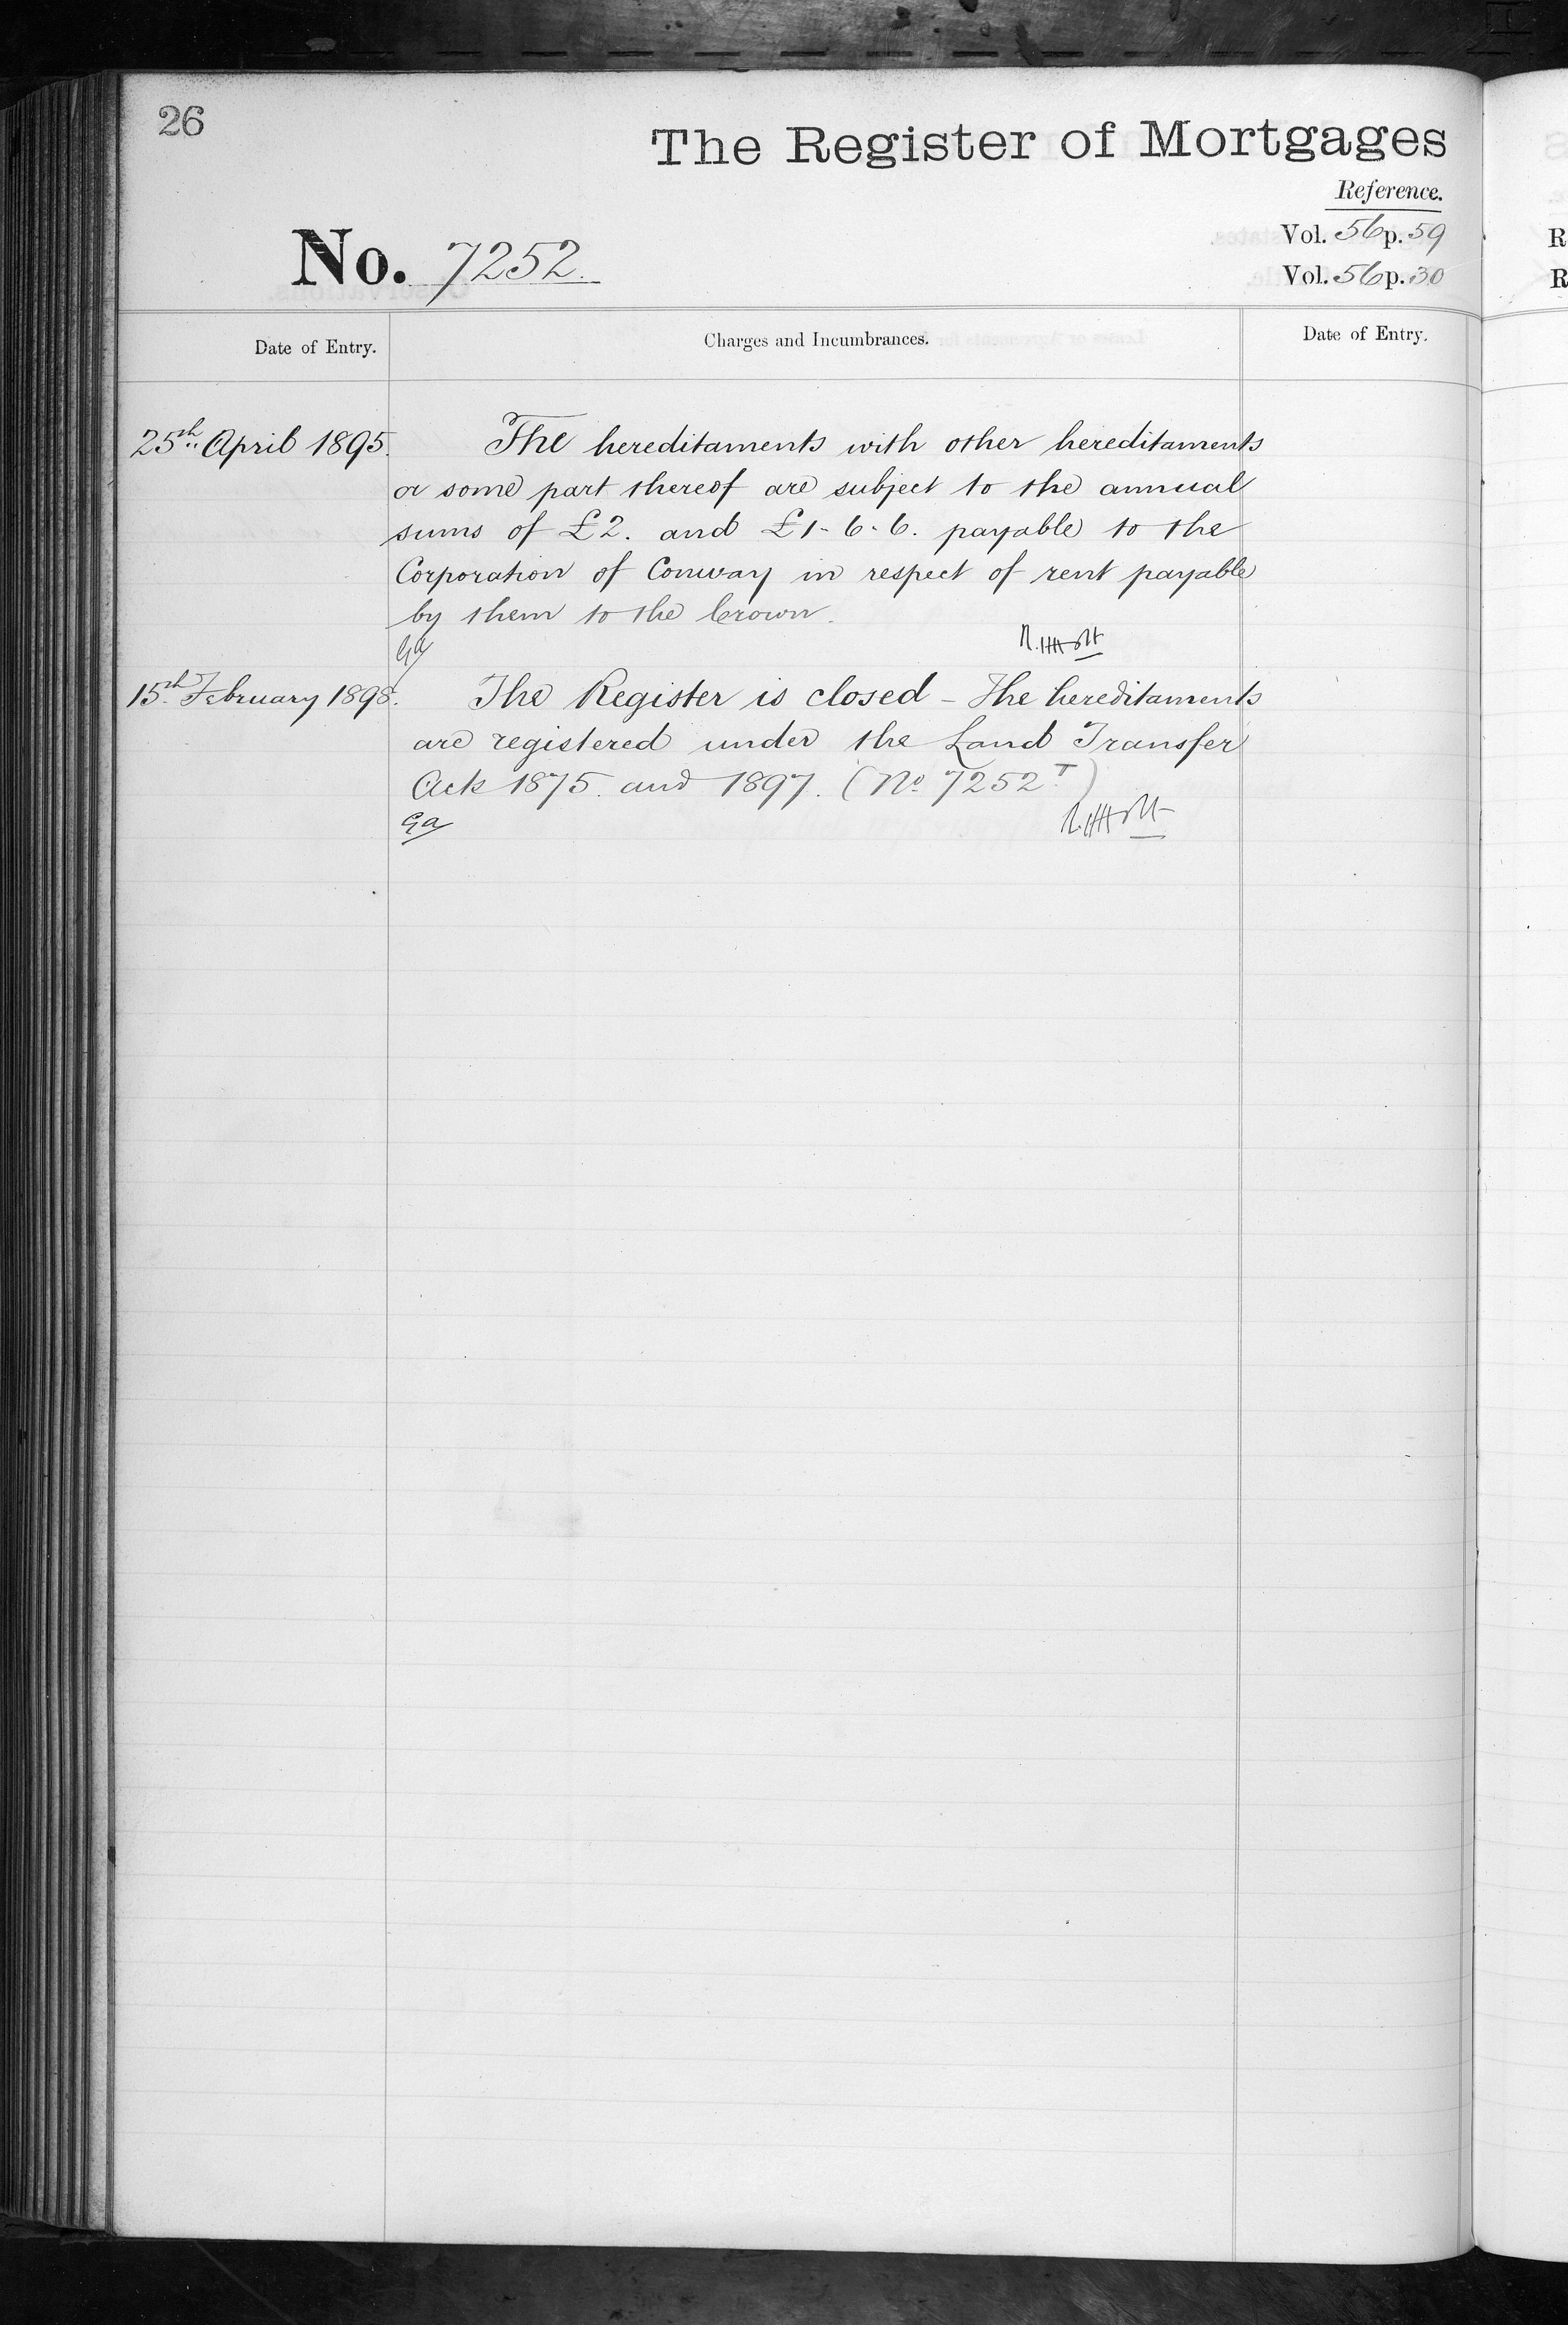 26
The Register of Mortgages
Reference.
No. 7252.
Vol. 56 p. 59
Vol. 56 p. 30
Date of Entry.
Charges and Incumbrances.
Date of Entry.
25th April 1895. The hereditaments with other hereditaments
or some part thereof are subject to the annual
sums of £2. and £1-6-6. payable to the
Corporation of Conway in respect of rent payable
by them to the Crown.
15th February 1898. The Register is closed - The hereditaments
are registered under the Land Transfer
Acts 1875. and 1897. (No. 7252 T)
Ga
R
R